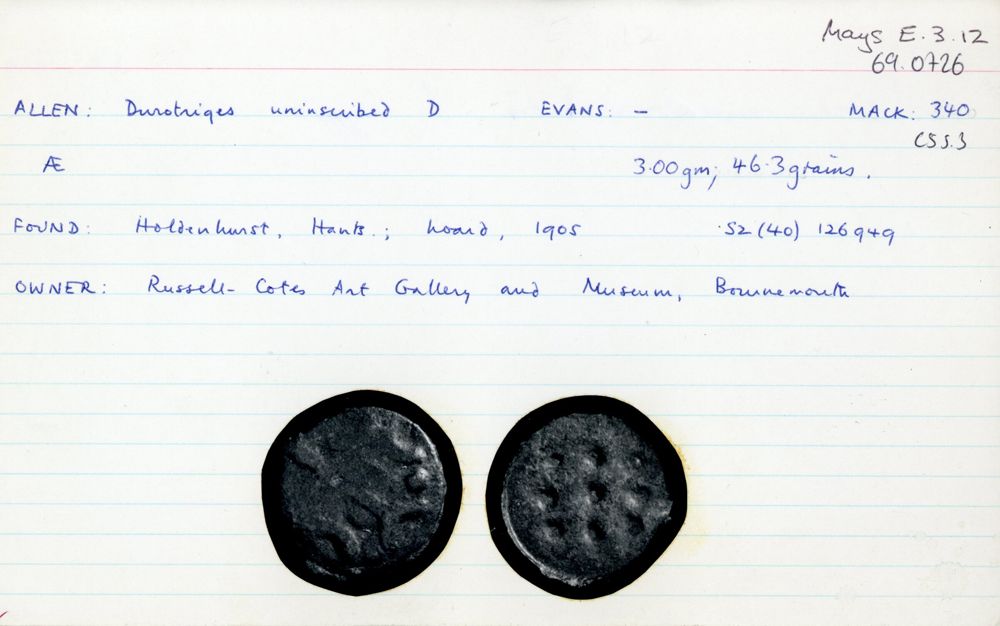 Mays E.3.12
69.0726
ALLEN: Durotriges uninscribed D EVANS: — MACK: 340
CSS.3
Æ 3.00gm; 46.3grains.
FOUND: Holdenhurst, Hants.; hoard, 1905 SZ (40) 126949
OWNER: Russell-Cotes Art Gallery and Museum, Bournemouth